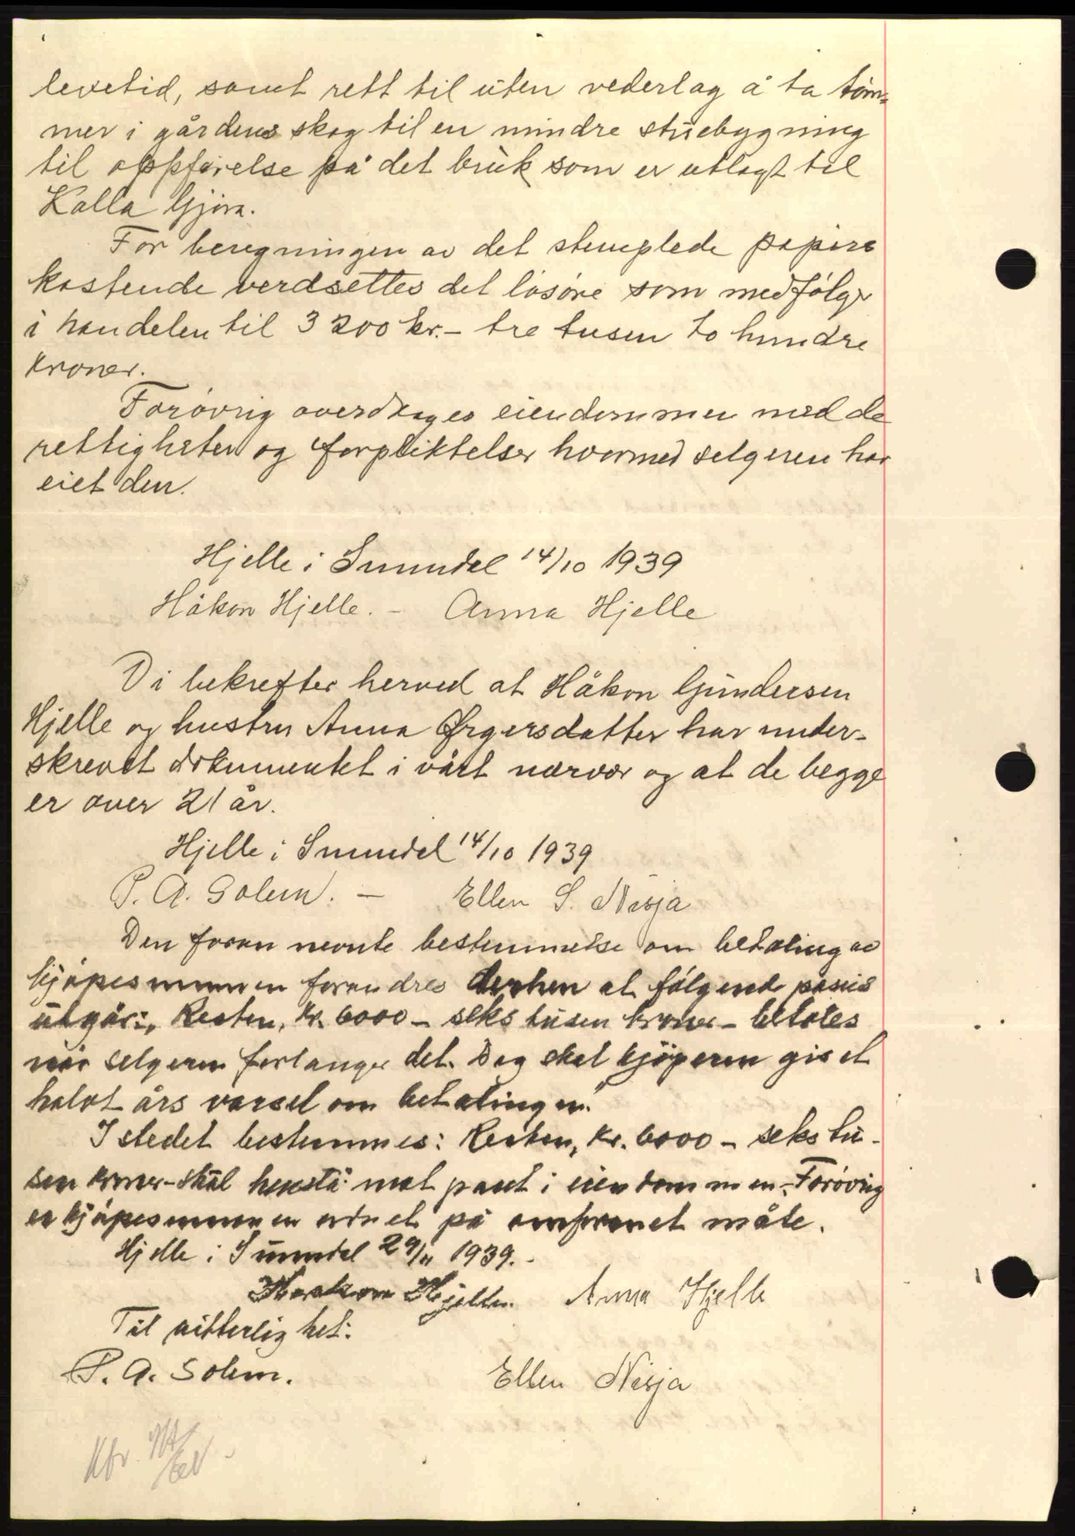 levetid, samt rett til uten vederlag å ta töm-
mer i gårdens skog til en mindre stuebygning
til oppförelse på det bruk som er utlagt til
Kalla Gjöra.
For beregningen av det stemplede papirs
kostende verdsettes det lösöre som medfölger
i handelen til 3200 kr. - tre tusen to hundre
kroner.
Forövrig overdrages eiendommen med de
rettigheter og forpliktelser hvormed selgeren har
eiet den.
Hjelle i Sunndal 14/10 1939
Håkon Hjelle. - Anna Hjelle
Vi bekrefter herved at Håkon Gundersen
Hjelle og hustru Anna Ørgersdatter har under-
skrevet dokumentet i vårt nærvær og at de begge
er over 21 år.
Hjelle i Sunndal 14/10 1939
P. A. Solem. - Ellen S. Nisja
Den foran nevnte bestemmelse om betaling av
kjöpesummen forandres derhen at fölgende passus
utgår: "Resten, kr. 6000 - seks tusen kroner - betales
når selgeren forlanger det. Dog skal kjöperen gis et
halvt års varsel om betalingen."
I stedet bestemmes: Resten, kr. 6000 - seks tu-
sen kroner - skal henstå mot pant i eiendommen. Forövrig
er kjöpesummen ordnet på omforenet måte.
Hjelle i Sunndal 29/11 1939.
Haakon Hjelle. Anna Hjelle
Til vitterlighet:
P. A. Solem. Ellen Nisja